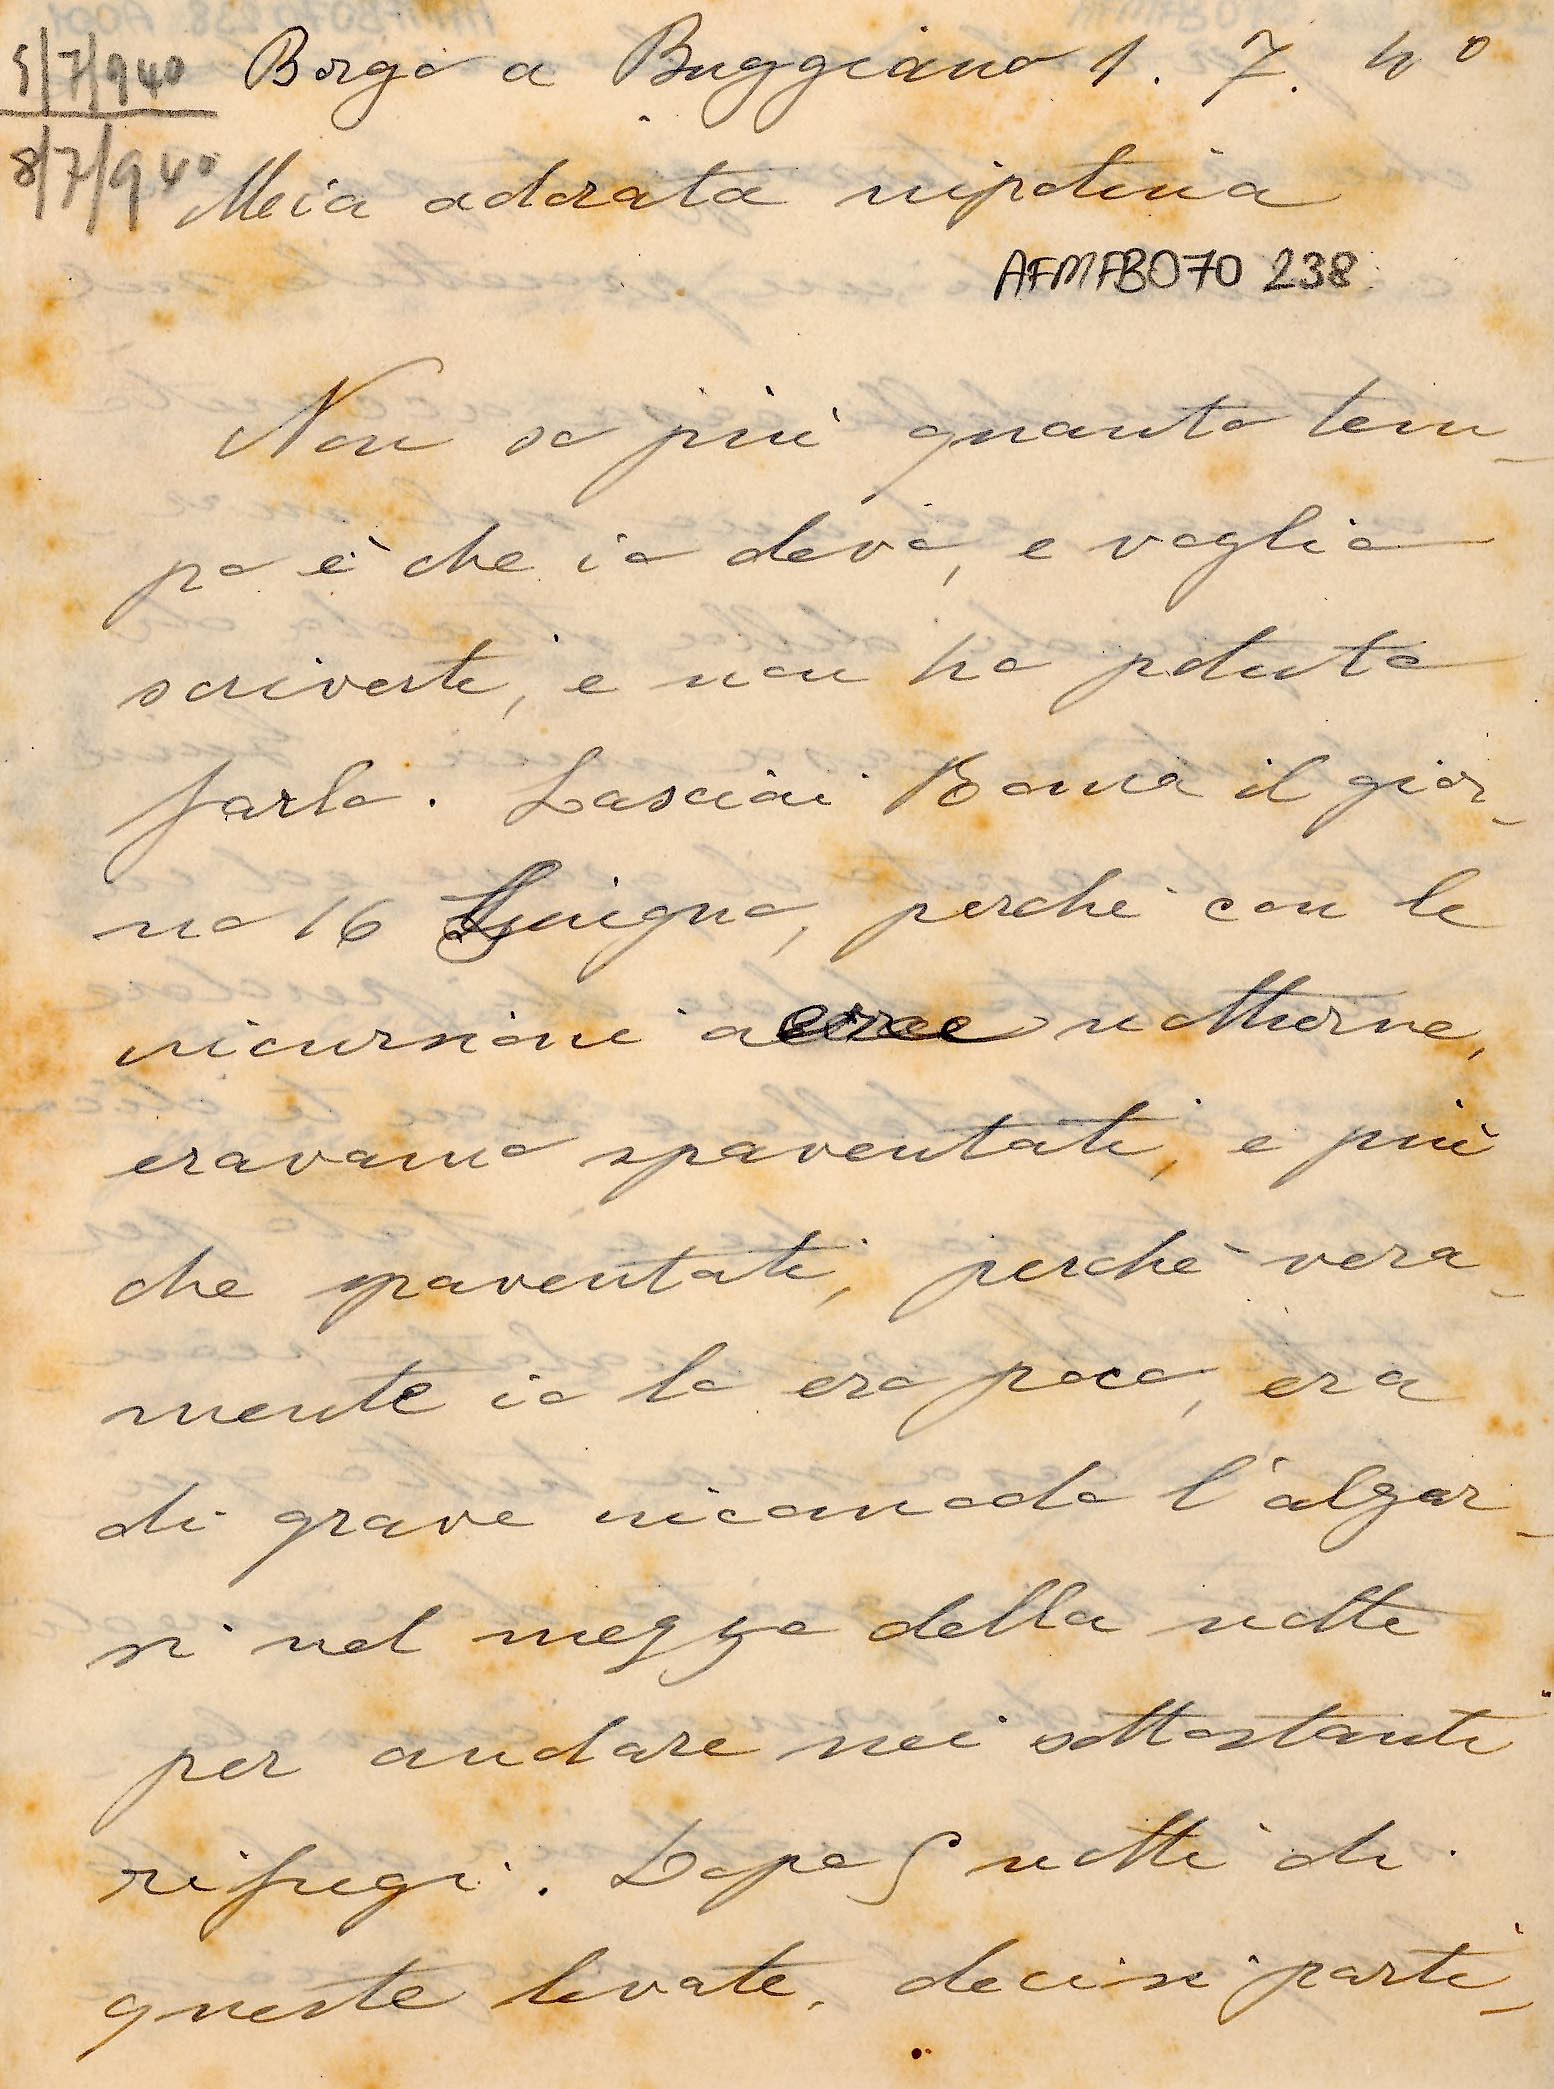 5/7/940
8/7/940
Borgo a Buggiano 1. 7. 40
Mia adorata nipotina
AFMFBO70 238
Non so più quanto tem-
po è che io devo, e voglio
scriverti, e non ho potuto
farlo. Lasciai Roma il gior-
no 16 Giugno, perchè con le
incursioni aeree notturne,
eravamo spaventati, e più
che spaventati, perchè vera-
mente io lo ero poco, era
di grave incomodo l'alzar-
si nel mezzo della notte
per andare nei sottostanti
rifugi. Dopo 5 notti di
queste levate, decisi parti-